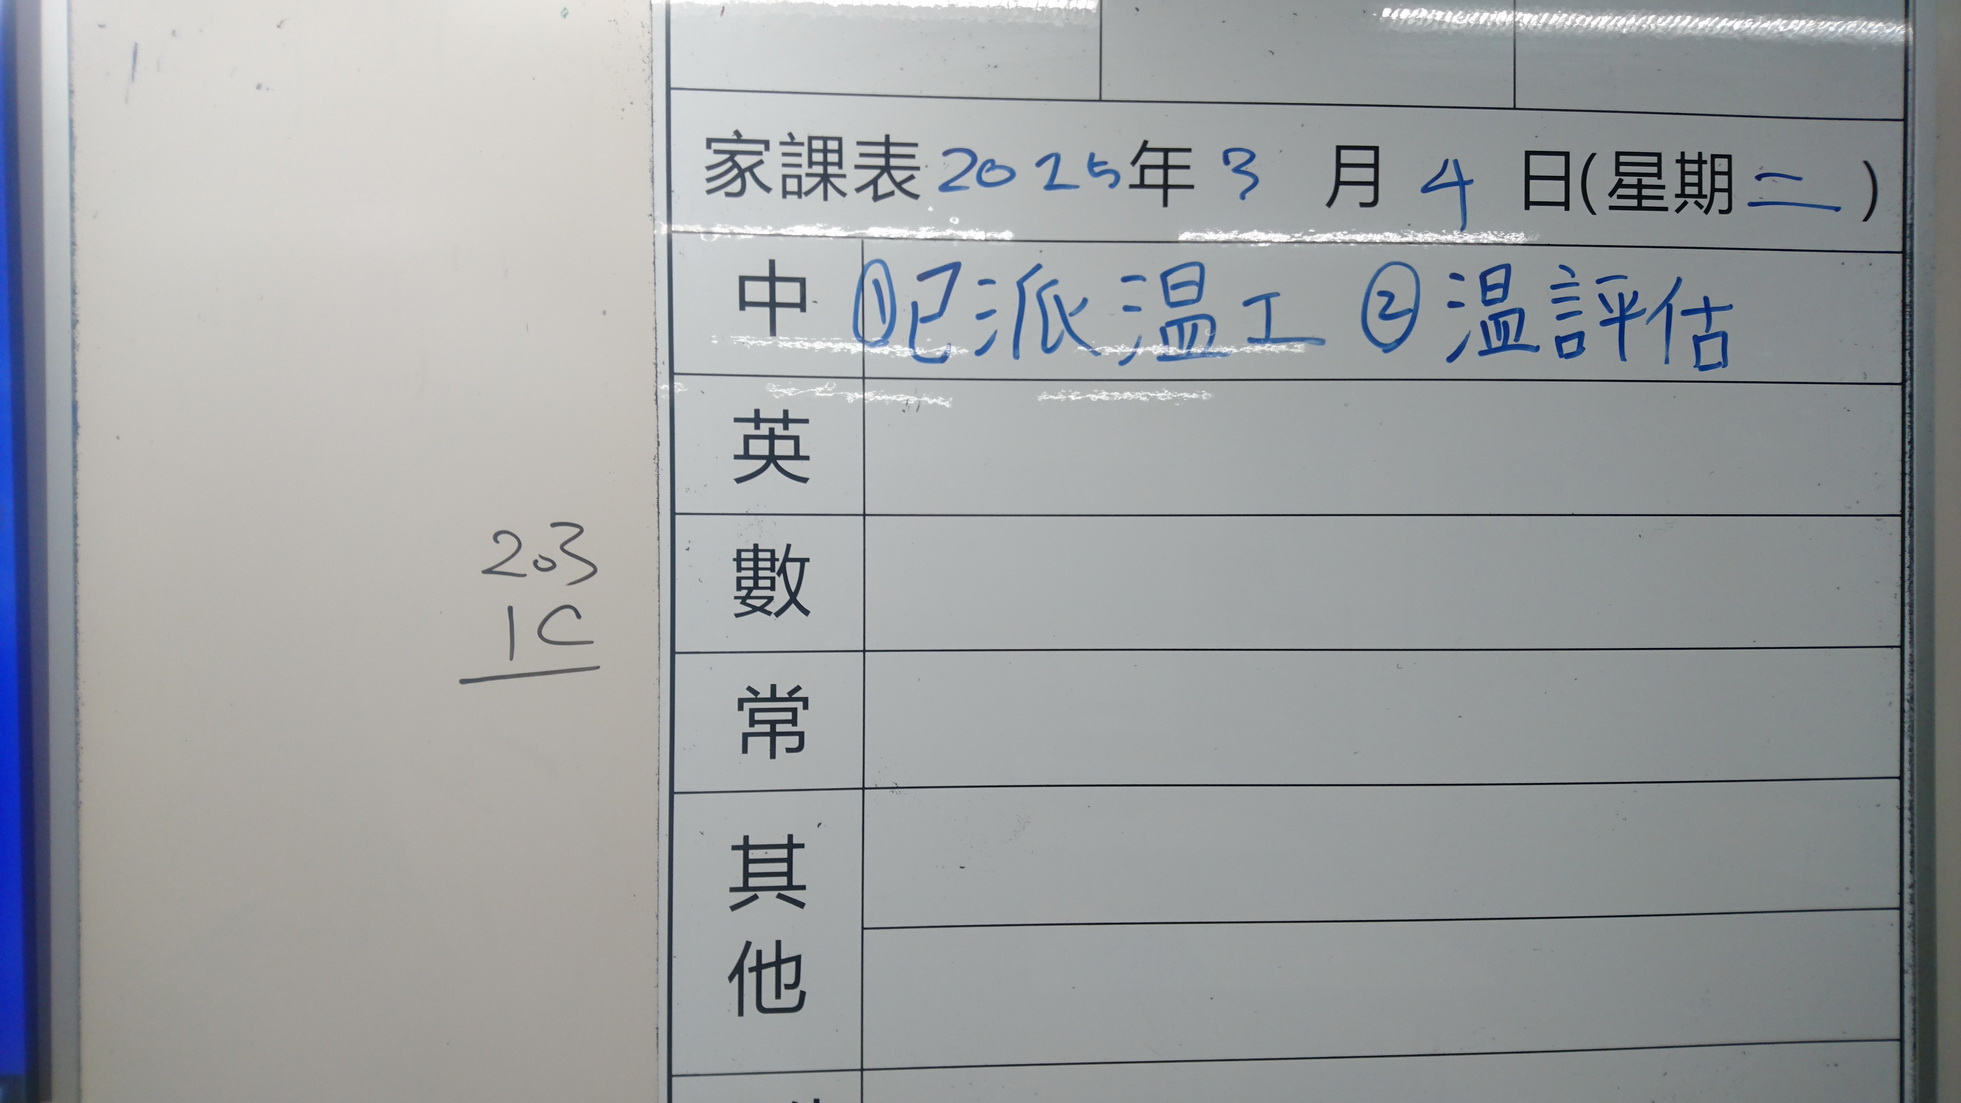 家課表2025年3月4日(星期二)
中 ①已派温工 ②温評估
英
數
常
其他
203
1C